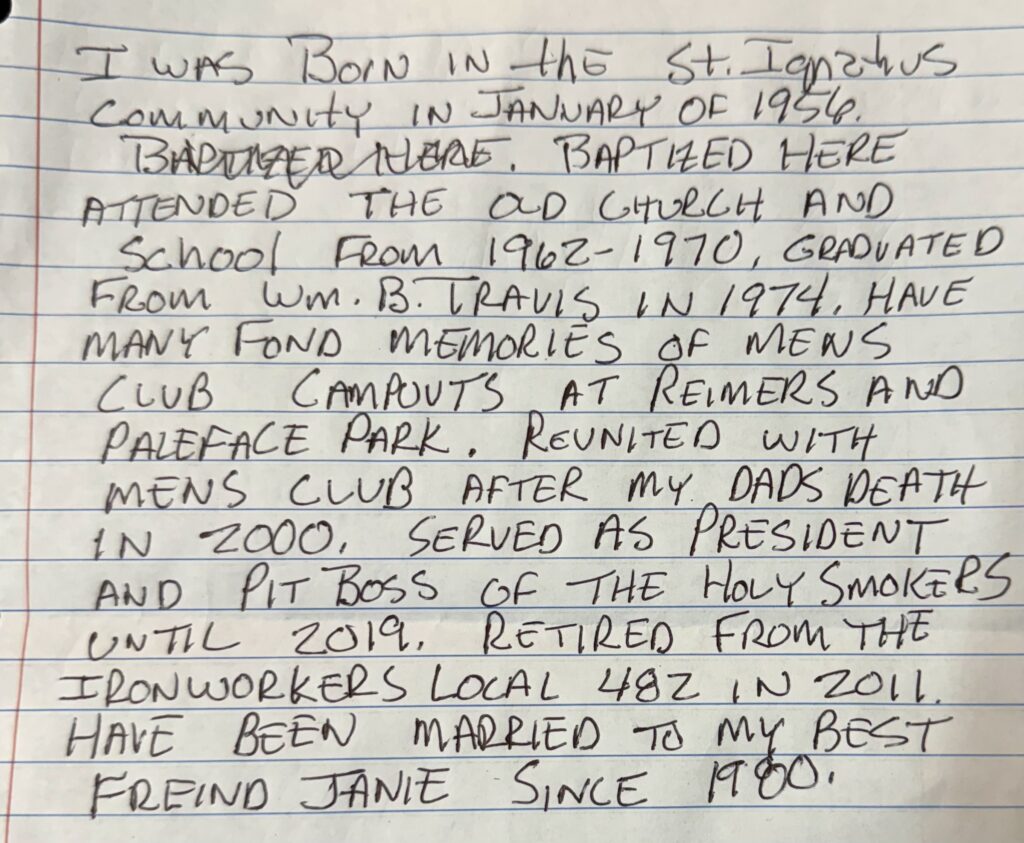 I WAS BORN IN the St. Ignatius
COMMUNITY IN JANUARY OF 1956.
BAPTIZED HERE. BAPTIZED HERE
ATTENDED THE OLD CHURCH AND
SCHOOL FROM 1962-1970, GRADUATED
FROM WM. B. TRAVIS IN 1974. HAVE
MANY FOND MEMORIES OF MENS
CLUB CAMPOUTS AT REIMERS AND
PALEFACE PARK. REUNITED WITH
MENS CLUB AFTER MY DADS DEATH
IN 2000. SERVED AS PRESIDENT
AND PIT BOSS OF THE HOLY SMOKERS
UNTIL 2019. RETIRED FROM THE
IRONWORKERS LOCAL 482 IN 2011.
HAVE BEEN MARRIED TO MY BEST
FREIND JANIE SINCE 1980.